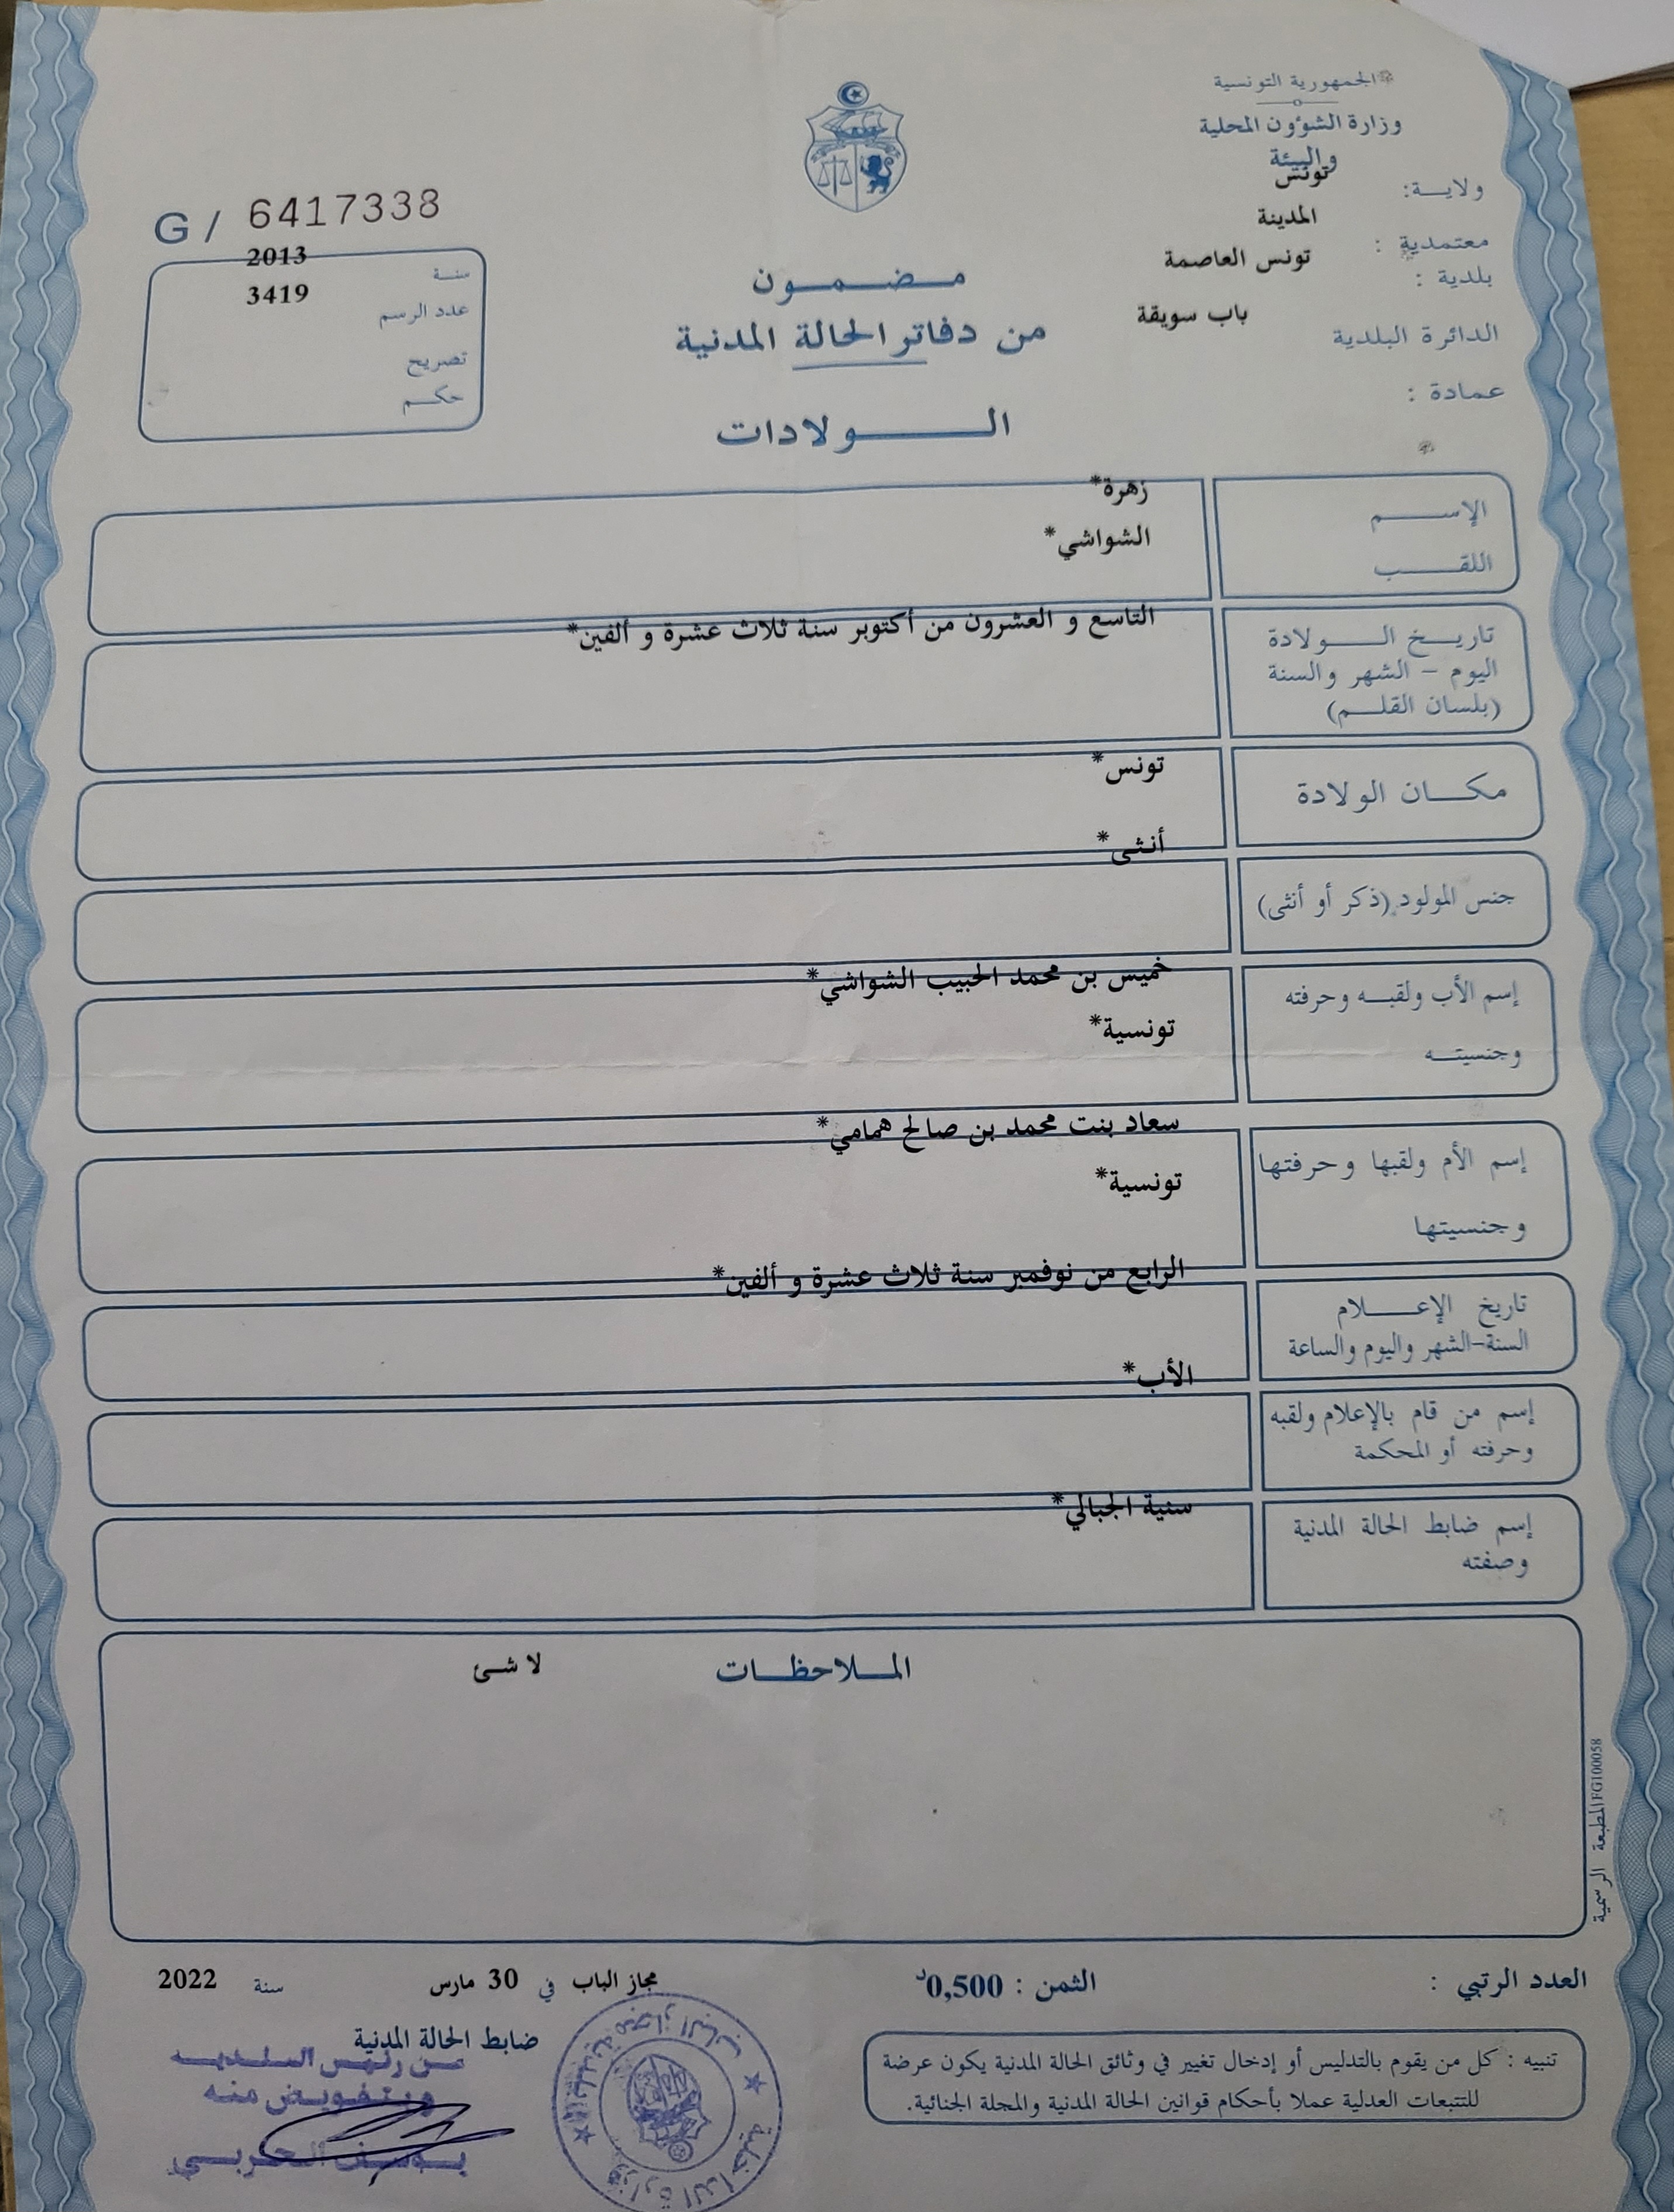 الجمهورية التونسية
وزارة الشؤون المحلية
والبيئة
ولايــة: تونس
معتمدية : المدينة
بلدية : تونس العاصمة
الدائرة البلدية باب سويقة
عمادة :
G / 6417338
سنة 2013
عدد الرسم 3419
تصريح
حكم
مضمون
من دفاتر الحالة المدنية
الولادات
الإسم زهرة*
اللقب الشواشي*
تاريخ الولادة التاسع و العشرون من أكتوبر سنة ثلاث عشرة و ألفين*
اليوم - الشهر والسنة
(بلسان القلم)
مكان الولادة تونس*
جنس المولود (ذكر أو أنثى) أنثى*
إسم الأب ولقبه وحرفته خميس بن محمد الحبيب الشواشي*
وجنسيته تونسية*
إسم الأم ولقبها وحرفتها سعاد بنت محمد بن صالح همامي*
وجنسيتها تونسية*
تاريخ الإعلام الرابع من نوفمبر سنة ثلاث عشرة و ألفين*
السنة-الشهر واليوم والساعة
إسم من قام بالإعلام ولقبه الأب*
وحرفته أو المحكمة
إسم ضابط الحالة المدنية سنية الجبالي*
وصفته
الملاحظات لا شئ
المطبعة الرسمية FG100058
العدد الرتبي : الثمن : 0,500د
مجاز الباب في 30 مارس سنة 2022
ضابط الحالة المدنية
عن رئيس البلدية
وبتفويض منه
يوسف الحربي
تنبيه : كل من يقوم بالتدليس أو إدخال تغيير في وثائق الحالة المدنية يكون عرضة
للتتبعات العدلية عملا بأحكام قوانين الحالة المدنية والمجلة الجنائية.
وزارة الداخلية
بلدية مجاز الباب